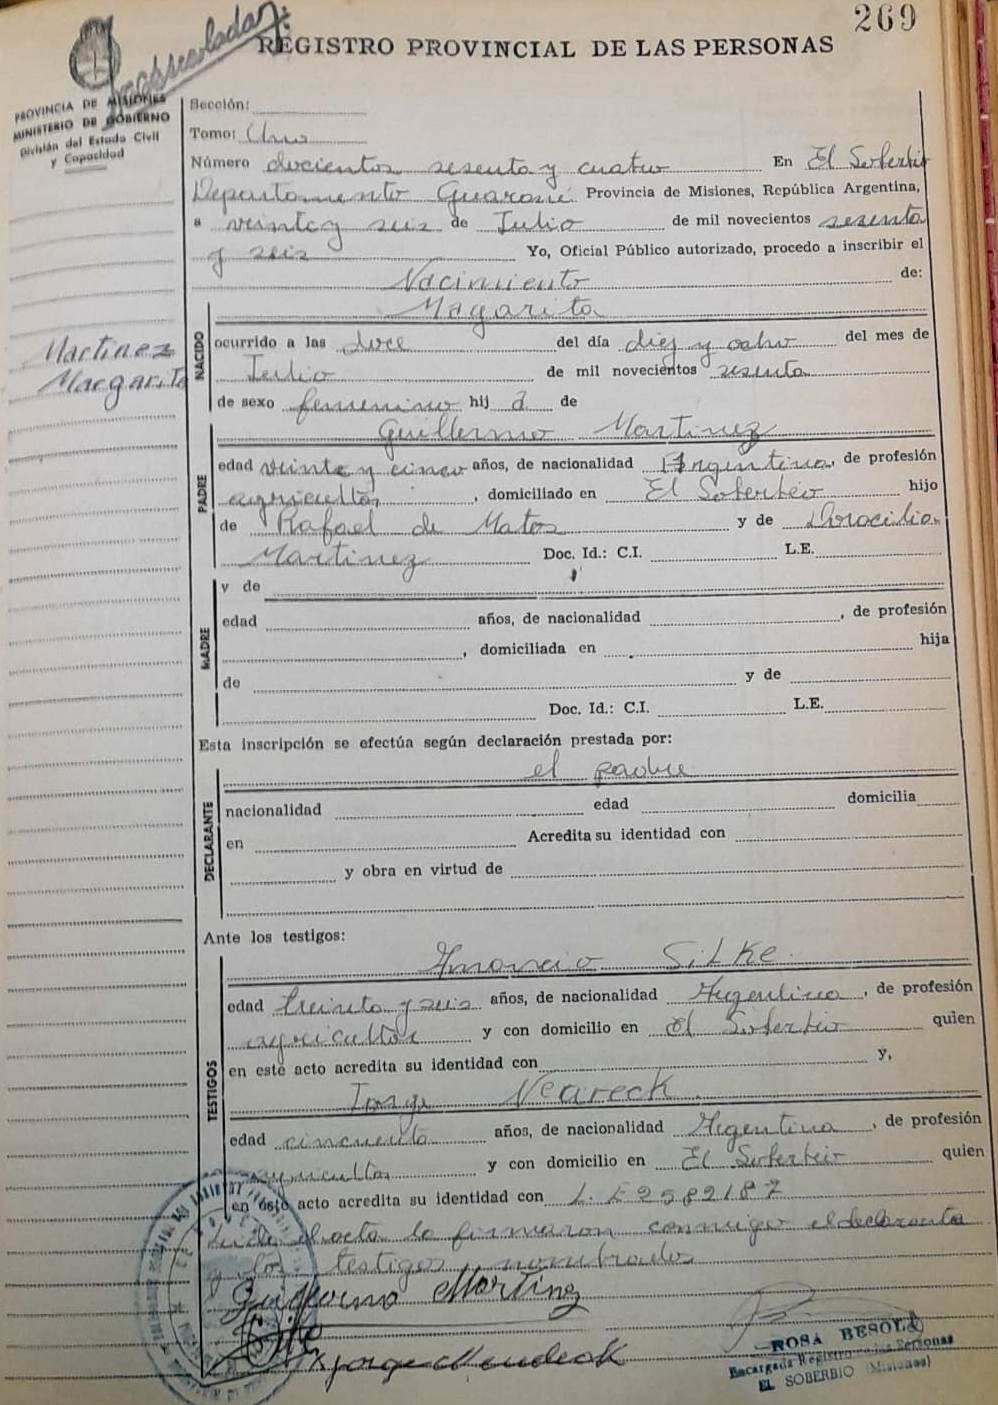 269
REGISTRO PROVINCIAL DE LAS PERSONAS
PROVINCIA DE MISIONES
MINISTERIO DE GOBIERNO
División del Estado Civil
y Capacidad
Sección:
Tomo: Uno
Número docientos sesenta y cuatro En El Soberbio
Departamento Guaraní Provincia de Misiones, República Argentina,
a veinte y seis de Julio de mil novecientos sesenta
y seis Yo, Oficial Público autorizado, procedo a inscribir el
Nacimiento de:
Martinez
Margarita
NACIDO
Magarita
ocurrido a las doce del día diez y ocho del mes de
Julio de mil novecientos sesenta
de sexo femenino hij a de
PADRE
Guillermo Martinez
edad veinte y cinco años, de nacionalidad Argentina, de profesión
agricultor, domiciliado en El Soberbio hijo
de Rafael de Matos y de
Martinez Doc. Id.: C.I. L.E.
MADRE
y de
edad años, de nacionalidad , de profesión
, domiciliada en hija
de y de
Doc. Id.: C.I. L.E.
Esta inscripción se efectúa según declaración prestada por:
DECLARANTE
el padre
nacionalidad edad domicilia
en Acredita su identidad con
y obra en virtud de
Ante los testigos:
TESTIGOS
Silke
edad treinta y seis años, de nacionalidad Argentina, de profesión
agricultor y con domicilio en El Soberbio quien
en este acto acredita su identidad con y,
Jorge
edad cincuenta años, de nacionalidad Argentina, de profesión
agricultor y con domicilio en El Soberbio quien
en este acto acredita su identidad con L. E 2582187
el acta la firmaron conmigo el declarante
y los testigos nombrados
Guillermo Martinez
Jorge
ROSA BESOLA
Encargada Registro de las Personas
EL SOBERBIO (Misiones)